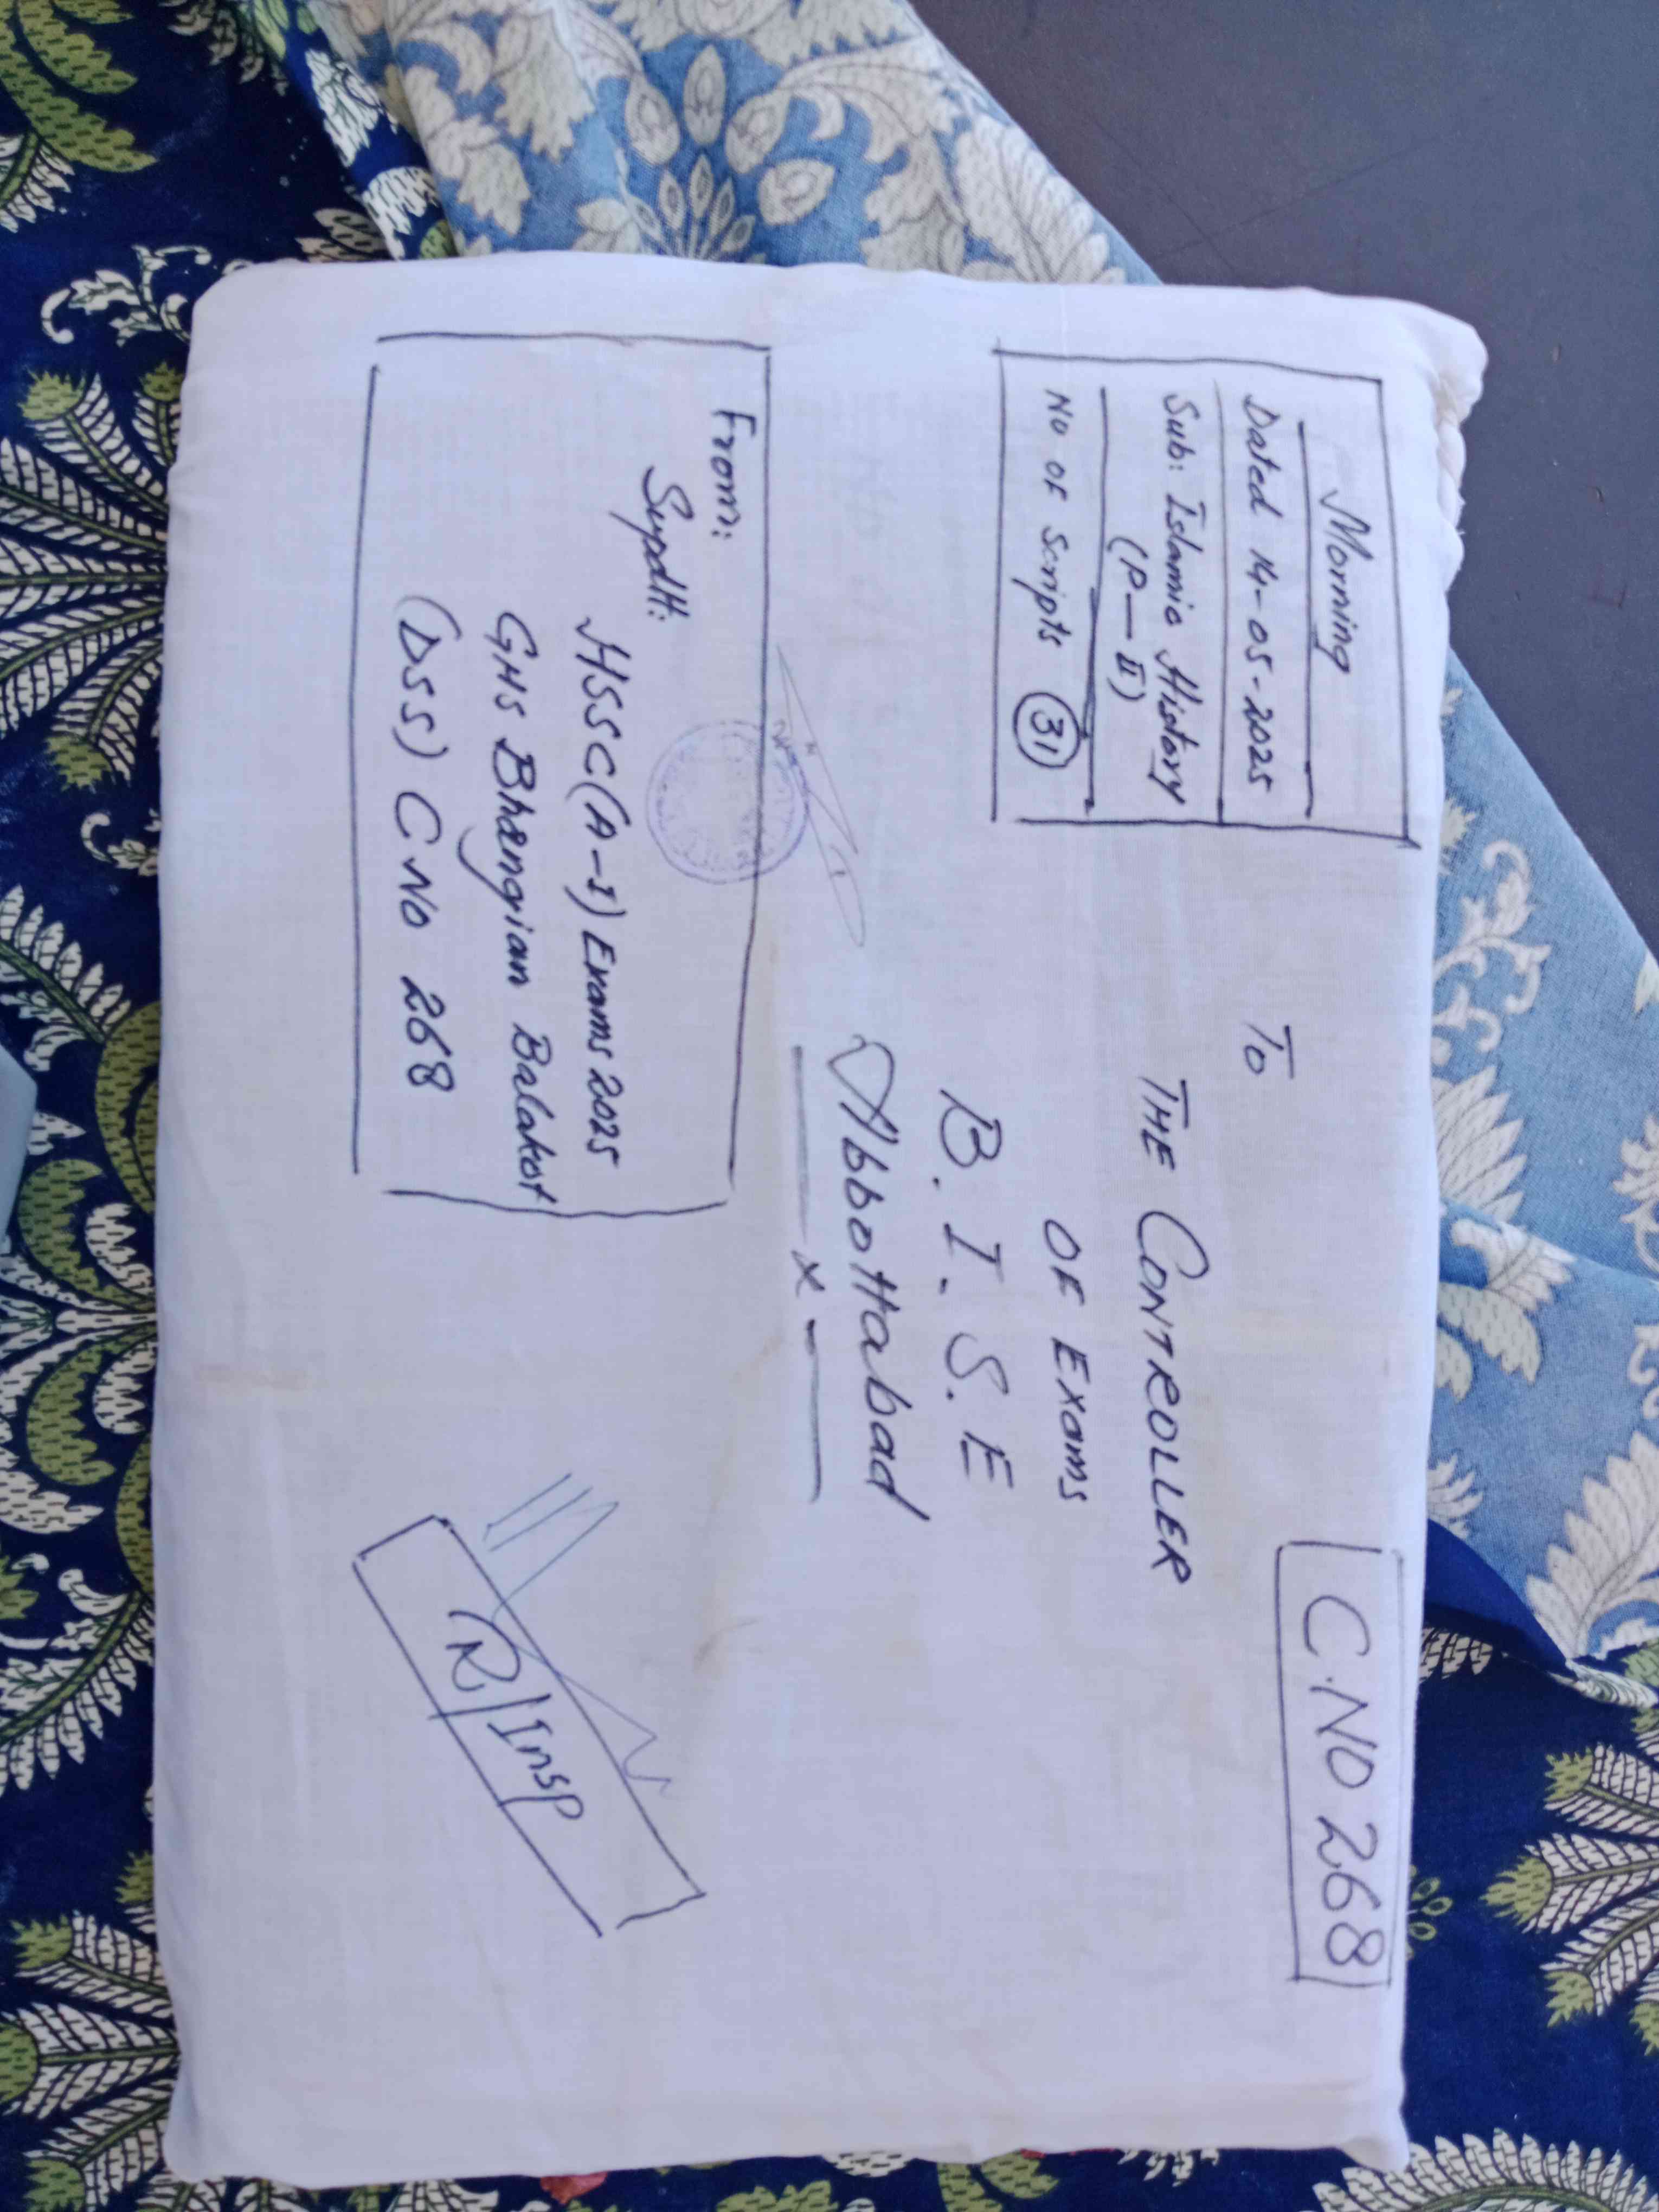 Morning
Dated 14-05-2025
Sub: Islamic History
(P-II)
No of scripts 31
C.NO 268
To
THE CONTROLLER
OF Exams
B.I.S.E
Abbottabad
x
From:
Supdtt:
HSSC(A-I) Exams 2025
GHS Bhangian Balakot
(DSS) C NO 268
R/Insp